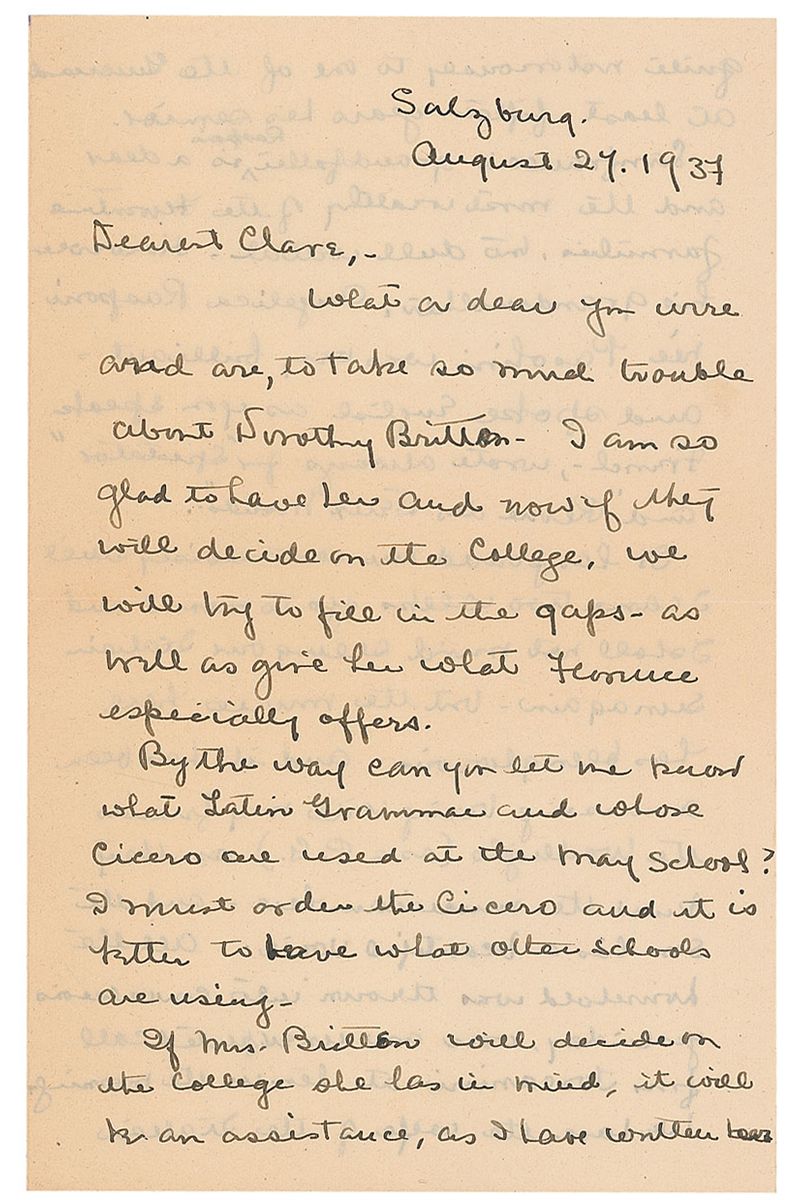 Salzburg.
August 27. 1937
Dearest Clare,-
What a dear you were
and are, to take so much trouble
about Dorothy Britton- I am so
glad to have her and now if they
will decide on the College, we
will try to fill in the gaps- as
well as give her what Florence
especially offers.
By the way can you let me know
what Latin Grammar and whose
Cicero are used at the May School?
I must order the Cicero and it is
better to have what other schools
are using-
If Mrs. Britton will decide on
the College she has in mind, it will
be an assistance, as I have written her